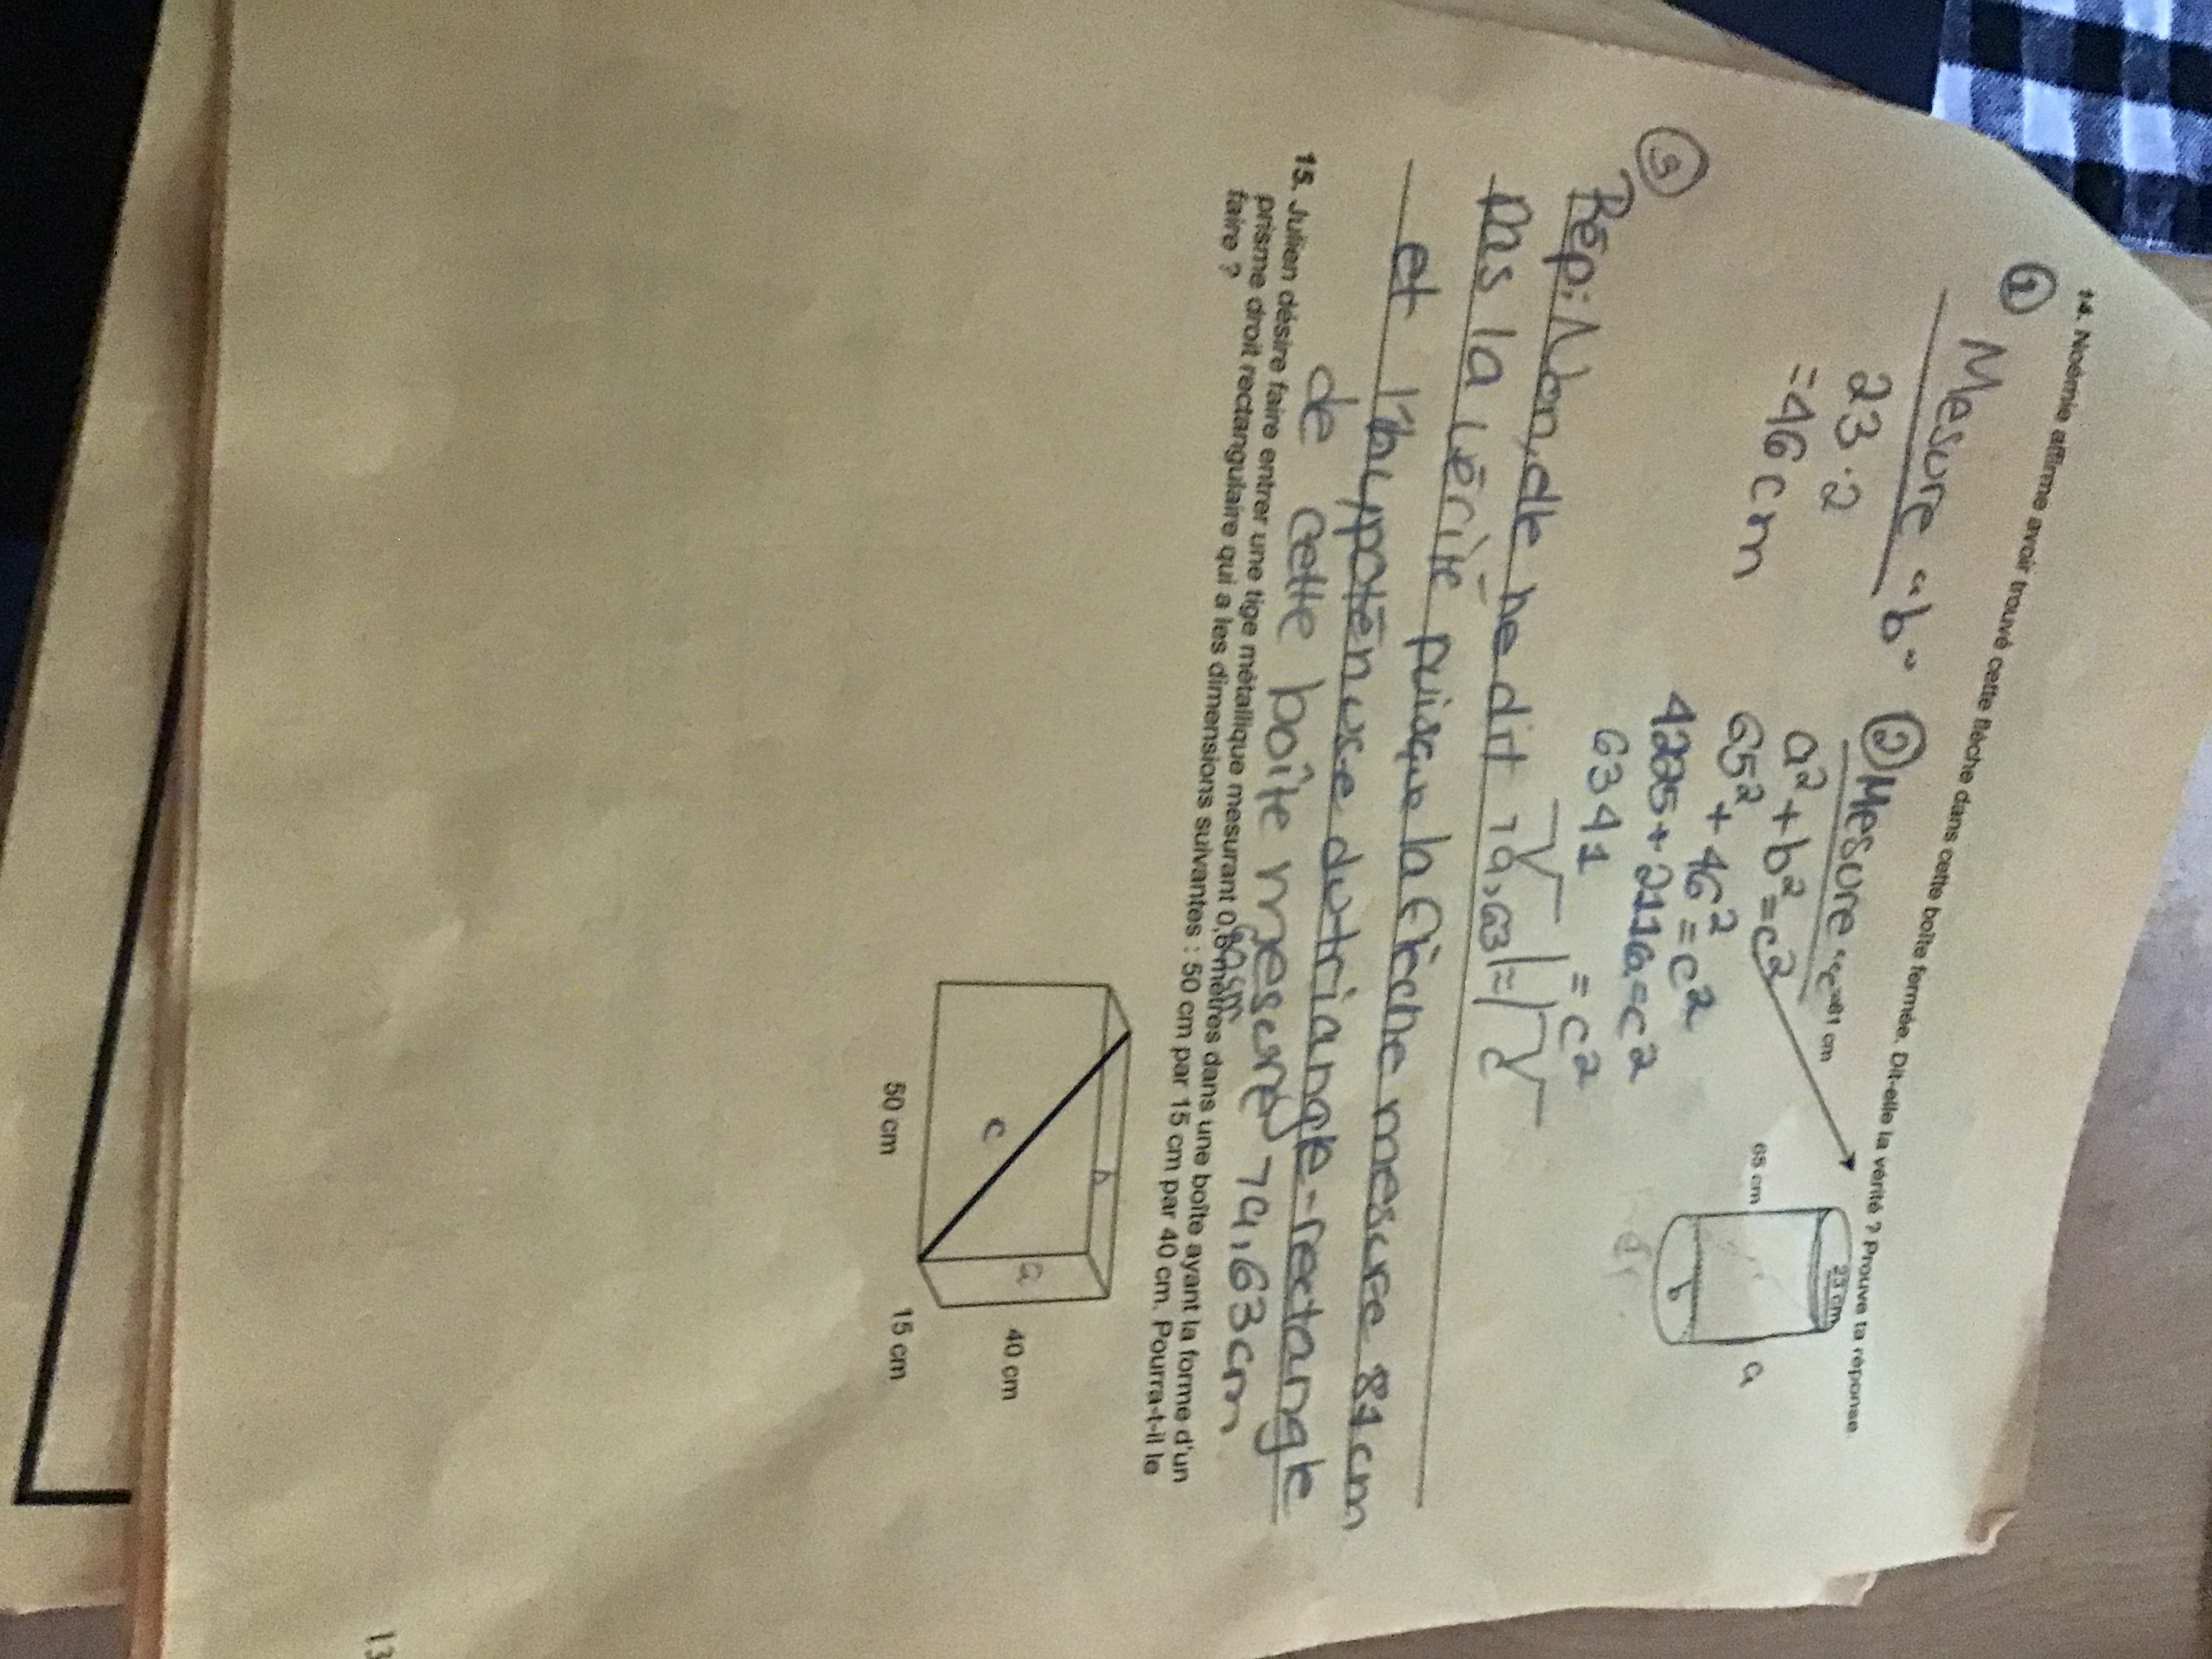 14. Noémie affirme avoir trouvé cette flèche dans cette boîte fermée. Dit-elle la vérité ? Prouve ta réponse.
① Mesure "b"
23·2
=46cm
② Mesure "c"
81 cm
a²+b²=c²
65²+46²=c²
4225+2116=c²
6341 = c²
79,63 = c
65 cm
23 cm
a
b
③
Rép: Non, elle ne dit
pas la vérité puisque la flèche mesure 81cm
et l'hypoténuse du triangle-rectangle
de cette boîte mesure 79,63cm
15. Julien désire faire entrer une tige métallique mesurant 0,6 mètres dans une boîte ayant la forme d'un
prisme droit rectangulaire qui a les dimensions suivantes : 50 cm par 15 cm par 40 cm. Pourra-t-il le
faire ?
60cm
b
a
c
40 cm
50 cm
15 cm
13